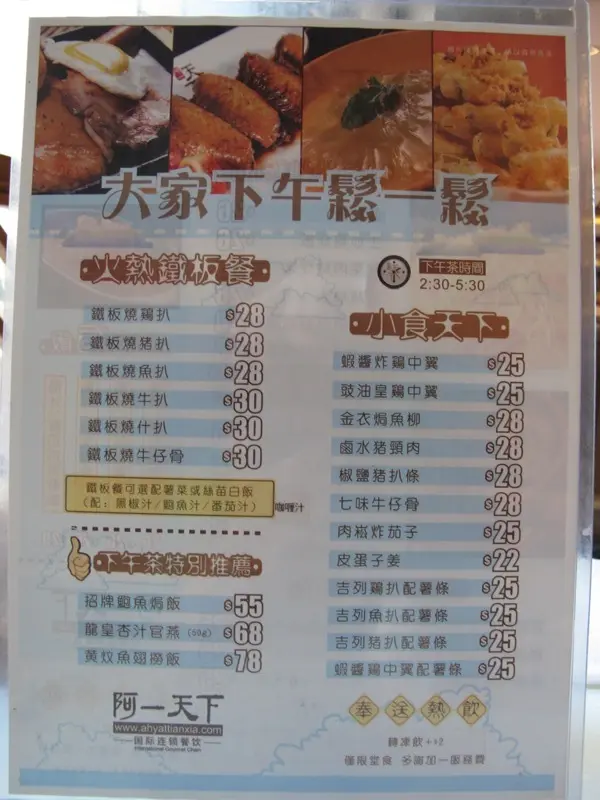 大家下午鬆一鬆
火熱鐵板餐
鐵板燒鷄扒 $28
鐵板燒豬扒 $28
鐵板燒魚扒 $28
鐵板燒牛扒 $30
鐵板燒什扒 $30
鐵板燒牛仔骨 $30
鐵板餐可選配薯菜或絲苗白飯
(配：黑椒汁/鮑魚汁/番茄汁) 咖喱汁
下午茶特別推薦
招牌鮑魚焗飯 $55
龍皇杏汁官燕 (50g) $68
黄炆魚翅撈飯 $78
阿一天下
www.ahyattianxia.com
国际连锁餐饮
International Gourmet Chain
下午茶時間
2:30-5:30
小食天下
蝦醬炸鷄中翼 $25
豉油皇鷄中翼 $25
金衣焗魚柳 $28
鹵水豬頸肉 $28
椒鹽豬扒條 $28
七味牛仔骨 $28
肉崧炸茄子 $25
皮蛋子姜 $22
吉列鷄扒配薯條 $25
吉列魚扒配薯條 $25
吉列豬扒配薯條 $25
蝦醬鷄中翼配薯條 $25
奉送熱飲
轉凍飲+$2
僅限堂食 多謝加一服務費